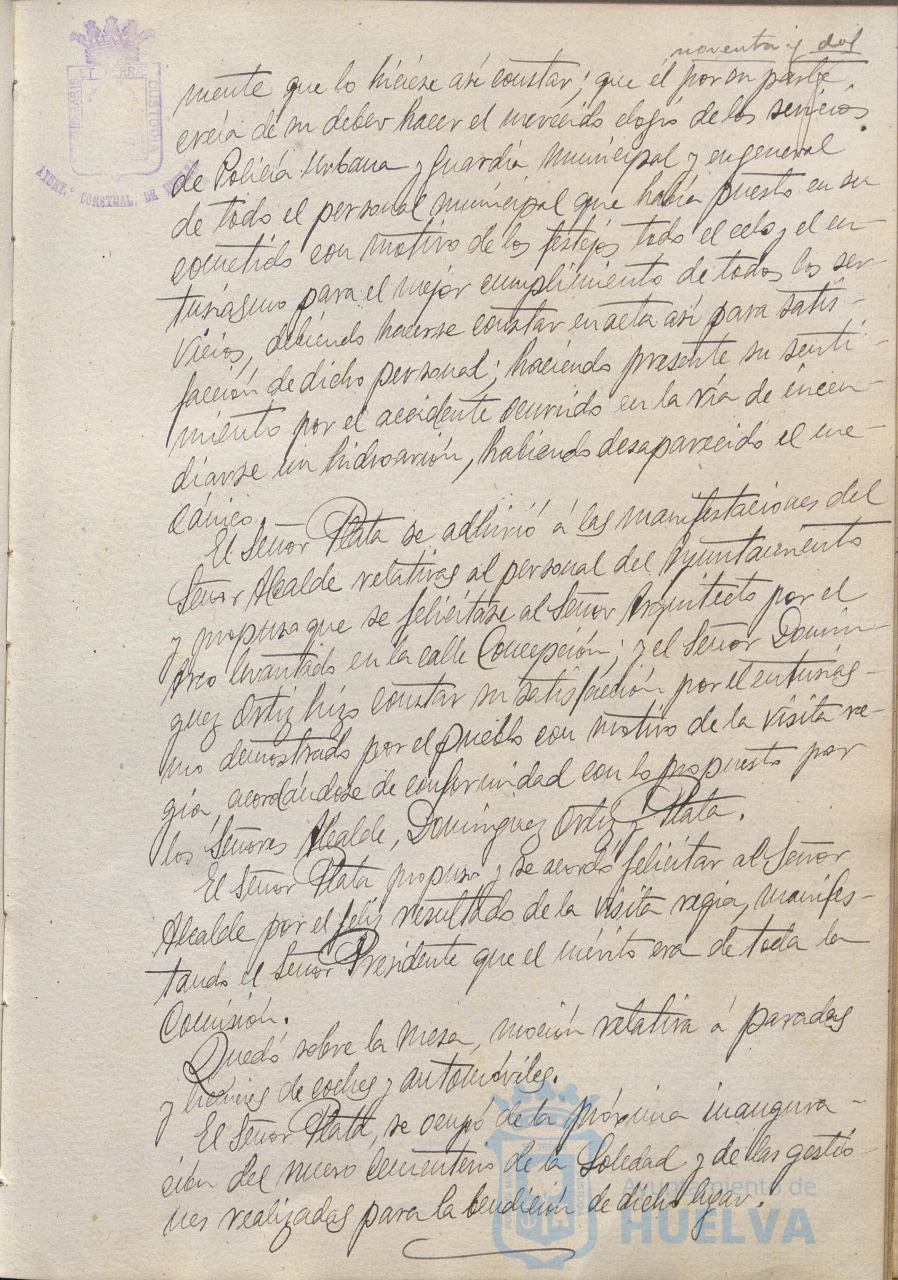 noventa y dos
mente que lo hiciese así constar; que él por su parte
creía de su deber hacer el merecido elogio de los servicios
de Policía Urbana y Guardia Municipal y en general
de todo el personal municipal que había puesto en su
cometido con motivo de los festejos todo el celo y el en-
tusiasmo para el mejor cumplimiento de todos los ser-
vicios, debiendo hacerse constar en acta así para satis-
facción de dicho personal; haciendo presente su senti-
miento por el accidente ocurrido en la ría de incen-
diarse un hidroavión, habiendo desaparecido el me-
cánico.
El Señor Plata se adhirió á las manifestaciones del
Señor Alcalde relativas al personal del Ayuntamiento
y propuso que se felicitase al Señor Arquitecto por el
Arco levantado en la calle Concepción; y el Señor Domin-
guez Ortiz hizo constar su satisfacción por el entusias-
mo demostrado por el pueblo con motivo de la visita re-
gia, acordándose de conformidad con lo propuesto por
los Señores Alcalde, Dominguez Ortiz y Plata.
El Señor Plata propuso y se acordó felicitar al Señor
Alcalde por el feliz resultado de la visita regia, manifes-
tando el Señor Presidente que el mérito era de toda la
Comisión.
Quedó sobre la mesa, moción relativa á paradas
y de coches y automóviles.
El Señor Plata, se ocupó de la próxima inaugura-
ción del nuevo Cementerio de la Soledad y de las gestio-
nes realizadas para la bendición de dicho lugar.
AYUNT.º CONSTNAL. DE
Ayuntamiento de
HUELVA